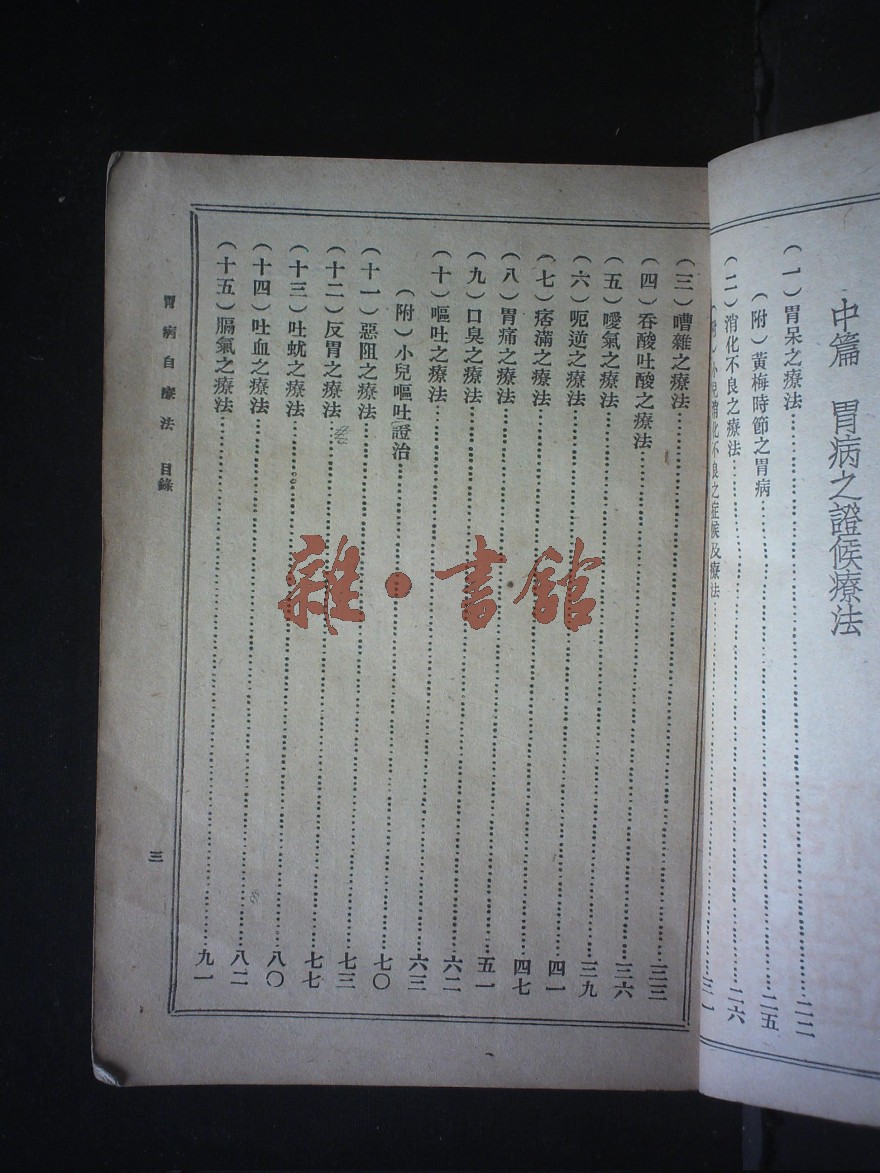 中篇　胃病之證候療法
（一）胃呆之療法……二二
（附）黃梅時節之胃病……二五
（二）消化不良之療法……二六
（附）小兒消化不良之症候及療法……三一
（三）嘈雜之療法……三三
（四）吞酸吐酸之療法……三六
（五）噯氣之療法……三九
（六）呃逆之療法……四一
（七）痞滿之療法……四七
（八）胃痛之療法……五一
（九）口臭之療法……六二
（十）嘔吐之療法……六三
（附）小兒嘔吐證治……七〇
（十一）惡阻之療法……七三
（十二）反胃之療法……七七
（十三）吐蚘之療法……八〇
（十四）吐血之療法……八二
（十五）膈氣之療法……九一
胃病自療法　目錄
三
雜·書館